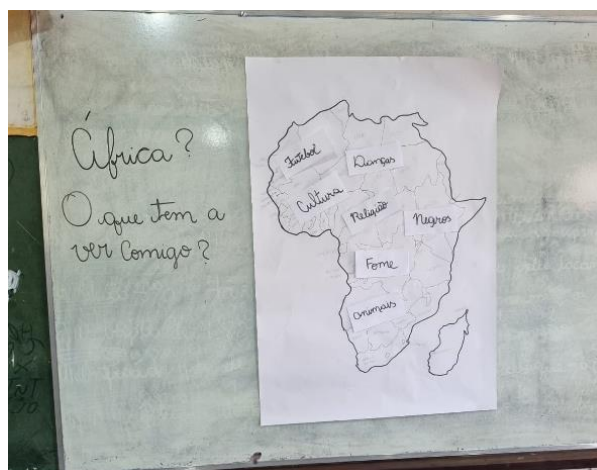 África?
O que tem a
ver comigo?
Futebol
Danças
Cultura
Religião
Negros
Fome
animais